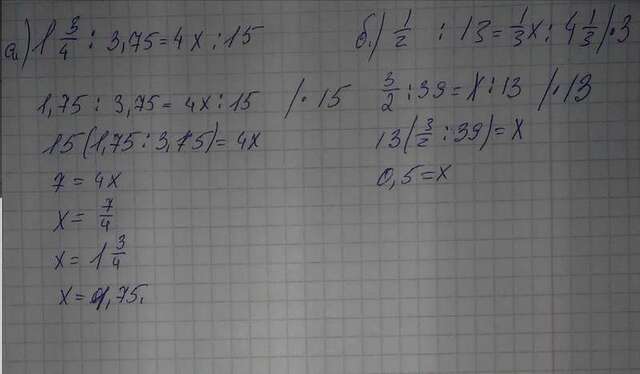 а) 1 3/4 : 3,75 = 4x : 15
1,75 : 3,75 = 4x : 15 / · 15
15(1,75 : 3,75) = 4x
7 = 4x
x = 7/4
x = 1 3/4
x = 1,75.
б.) 1/2 : 13 = 1/3 x : 4 1/3 / · 3
3/2 : 39 = x : 13 / · 13
13(3/2 : 39) = x
0,5 = x